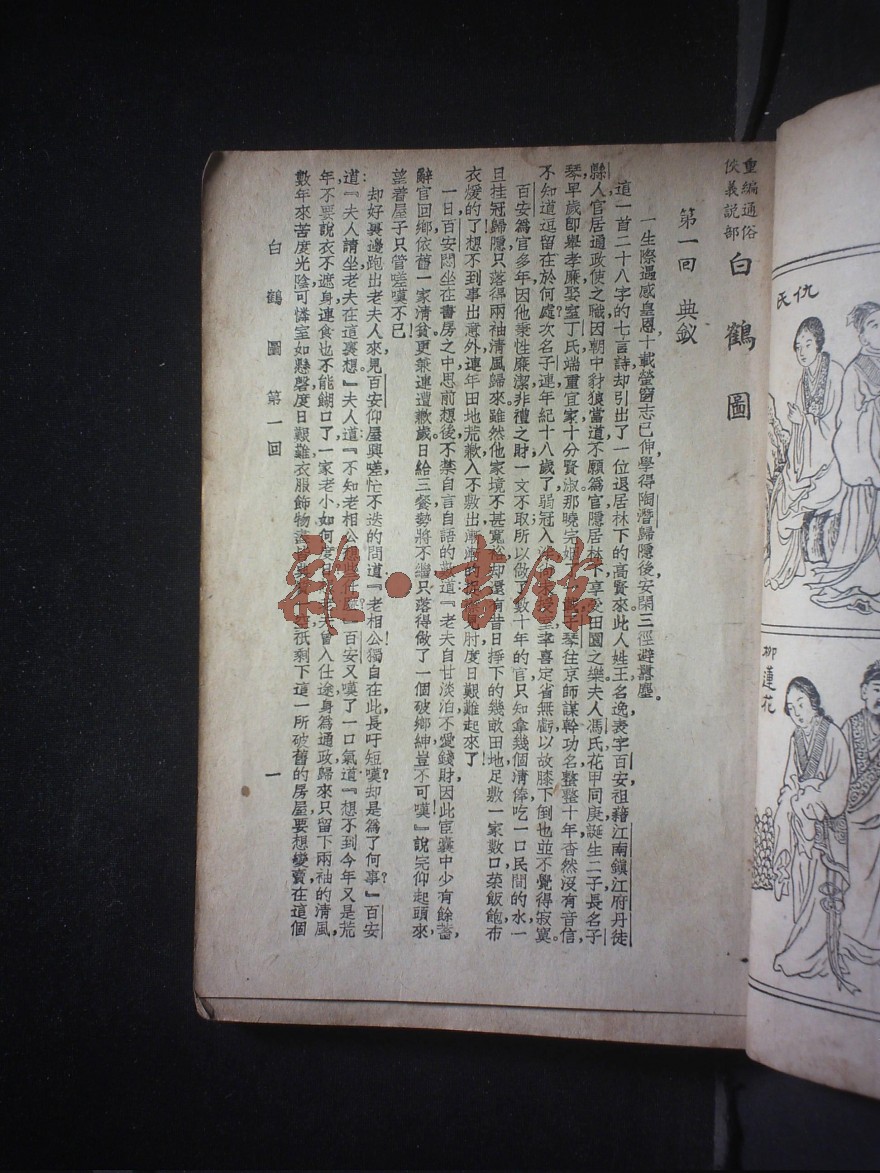 重編通俗
俠義說部
白鶴圖
第一回　典釵
一生際遇感皇恩，十載螢窗志已伸，學得陶潛歸隱後，安閑三徑避囂塵。
這一首二十八字的七言詩，却引出了一位退居林下的高賢來，此人姓王名逸，表字百安，祖籍江南鎮江府丹徒
縣人，官居通政使之職，因朝中豺狼當道，不願爲官，隱居林下，享受田園之樂，夫人馮氏，花甲同庚，誕生二子，長名子
琴，早歲卽舉孝廉，娶室丁氏，端重宜家，十分賢淑，那曉完姻 子琴往京師謀幹功名，整整十年，杳然沒有音信，
不知道逗留在於何處，次名子連，年紀十八歲了，弱冠入泮 幸喜定省無虧，以故膝下倒也並不覺得寂寞。
百安爲官多年，因他秉性廉潔，非禮之財，一文不取，所以做了數十年的官，只知拿幾個淸俸，吃一口民間的水，一
旦挂冠歸隱，只落得兩袖淸風歸來，雖然他家境不甚寬裕，却還有昔日掙下的幾畝田地，足敷一家數口，菜飯飽布
衣煖的了，想不到事出意外，連年田地荒歉，入不敷出，漸漸的 肘，度日艱難起來了！
一日，百安悶坐在書房之中，思前想後，不禁自言自語的 道：『老夫自甘淡泊，不愛錢財，因此宦囊中少有餘蓄，
辭官回鄉，依舊一家淸貧，更兼連遭歉歲，日給三餐，勢將不繼，只落得做了一個破鄉紳，豈不可嘆！』說完，仰起頭來，
望着屋子，只管嗟嘆不已！
却好裏邊跑出老夫人來，見百安仰屋興嗟，忙不迭的問道：『老相公獨自在此長吁短嘆，却是爲了何事？』百安
道：『夫人請坐，老夫在這裏想。』夫人道：『不知老相公想些什麼？』百安又嘆了一口氣道：『想不到今年又是荒
年，不要說衣不遮身，連食也不能餬口了，一家老小，如何度日？ 老夫曾入仕途，身爲通政，歸來只留下兩袖的淸風，
數年來苦度光陰，可憐室如懸磬，度日艱難，衣服飾物 祇剩下這一所破舊的房屋，要想變賣，在這個
白鶴圖　第一回
一
仇氏
柳蓮花
雜·書館